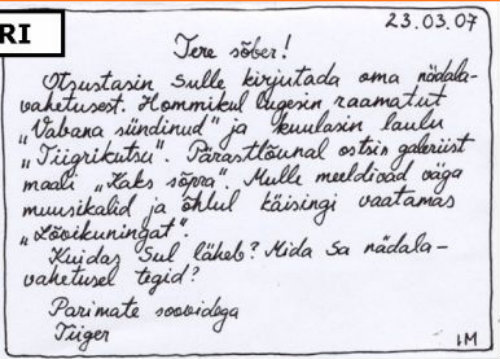 RI
23.03.07
Tere sõber!
Otsustasin Sulle kirjutada oma nädala-
vahetusest. Hommikul lugesin raamatut
„Vabana sündinud" ja kuulasin laulu
„Tiigrikutsu". Pärastlõunal ostsin galeriist
maali „Kaks sõpra". Mulle meeldivad väga
muusikalid ja õhtul käisingi vaatamas
„Lõvikuningat".
Kuidas Sul läheb? Mida Sa nädala-
vahetusel tegid?
Parimate soovidega
Tiiger
IM